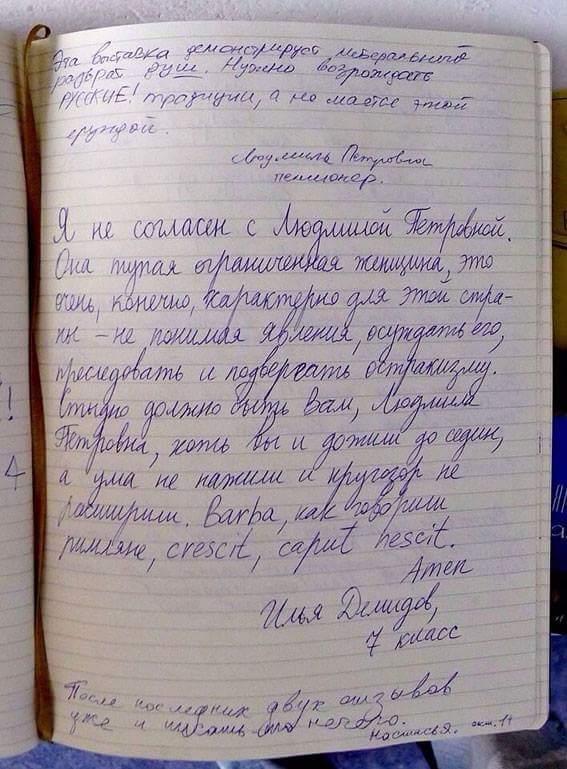 Эта выставка демонстрирует либеральный
разврат душ. Нужно возрождать
РУССКИЕ! традиции, а не маятся этой
ерундой.
Людмила Петровна
пенсионер.
Я не согласен с Людмилой Петровной.
Она тупая ограниченная женщина, это
очень, конечно, характерно для этой стра-
ны – не понимая явления, осуждать его,
преследовать и подвергать остракизму.
Стыдно должно быть Вам, Людмила
Петровна, хоть вы и дожили до седин,
а ума не нажили и кругозор не
расширили. Barba, как говорили
римляне, crescit, caput nescit.
Amen
Илья Демидов,
7 класс
После последних двух отзывов
уже и писать-то нечего.
Настасья. окт.
!
4